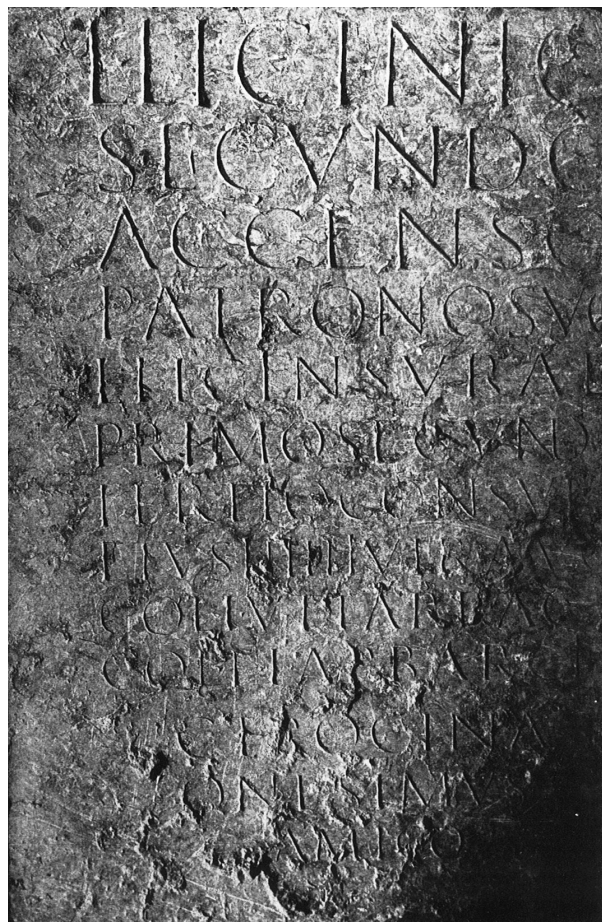 L LICINIO
SECVNDO
ACCENSO
PATRONO SVO
L LICIN SVRAE
PRIMO SECVND
TERTIO CONSVL
EIVS IIIIII VIR AV
COL I V T TARRAC
COL F I A P BARCI
C TROCINA
ONESIMVS
AMICO